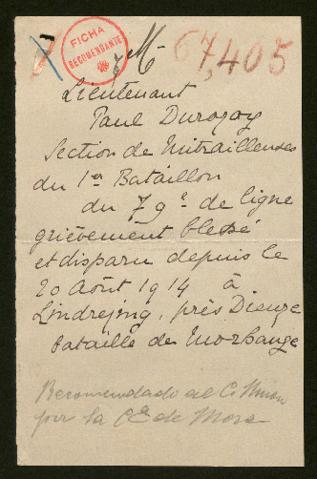 FICHA
RECOMENDANTE
M
67,405
Lieutenant
Paul Durozoy
Section de Mitrailleuses
du 1er Bataillon
du 79e de ligne
grièvement blessé
et disparu depuis le
20 Août 1914 à
Lindrejing, près Dieuze
bataille de Morhange
Recomendado al C.
por la Csa de Mora